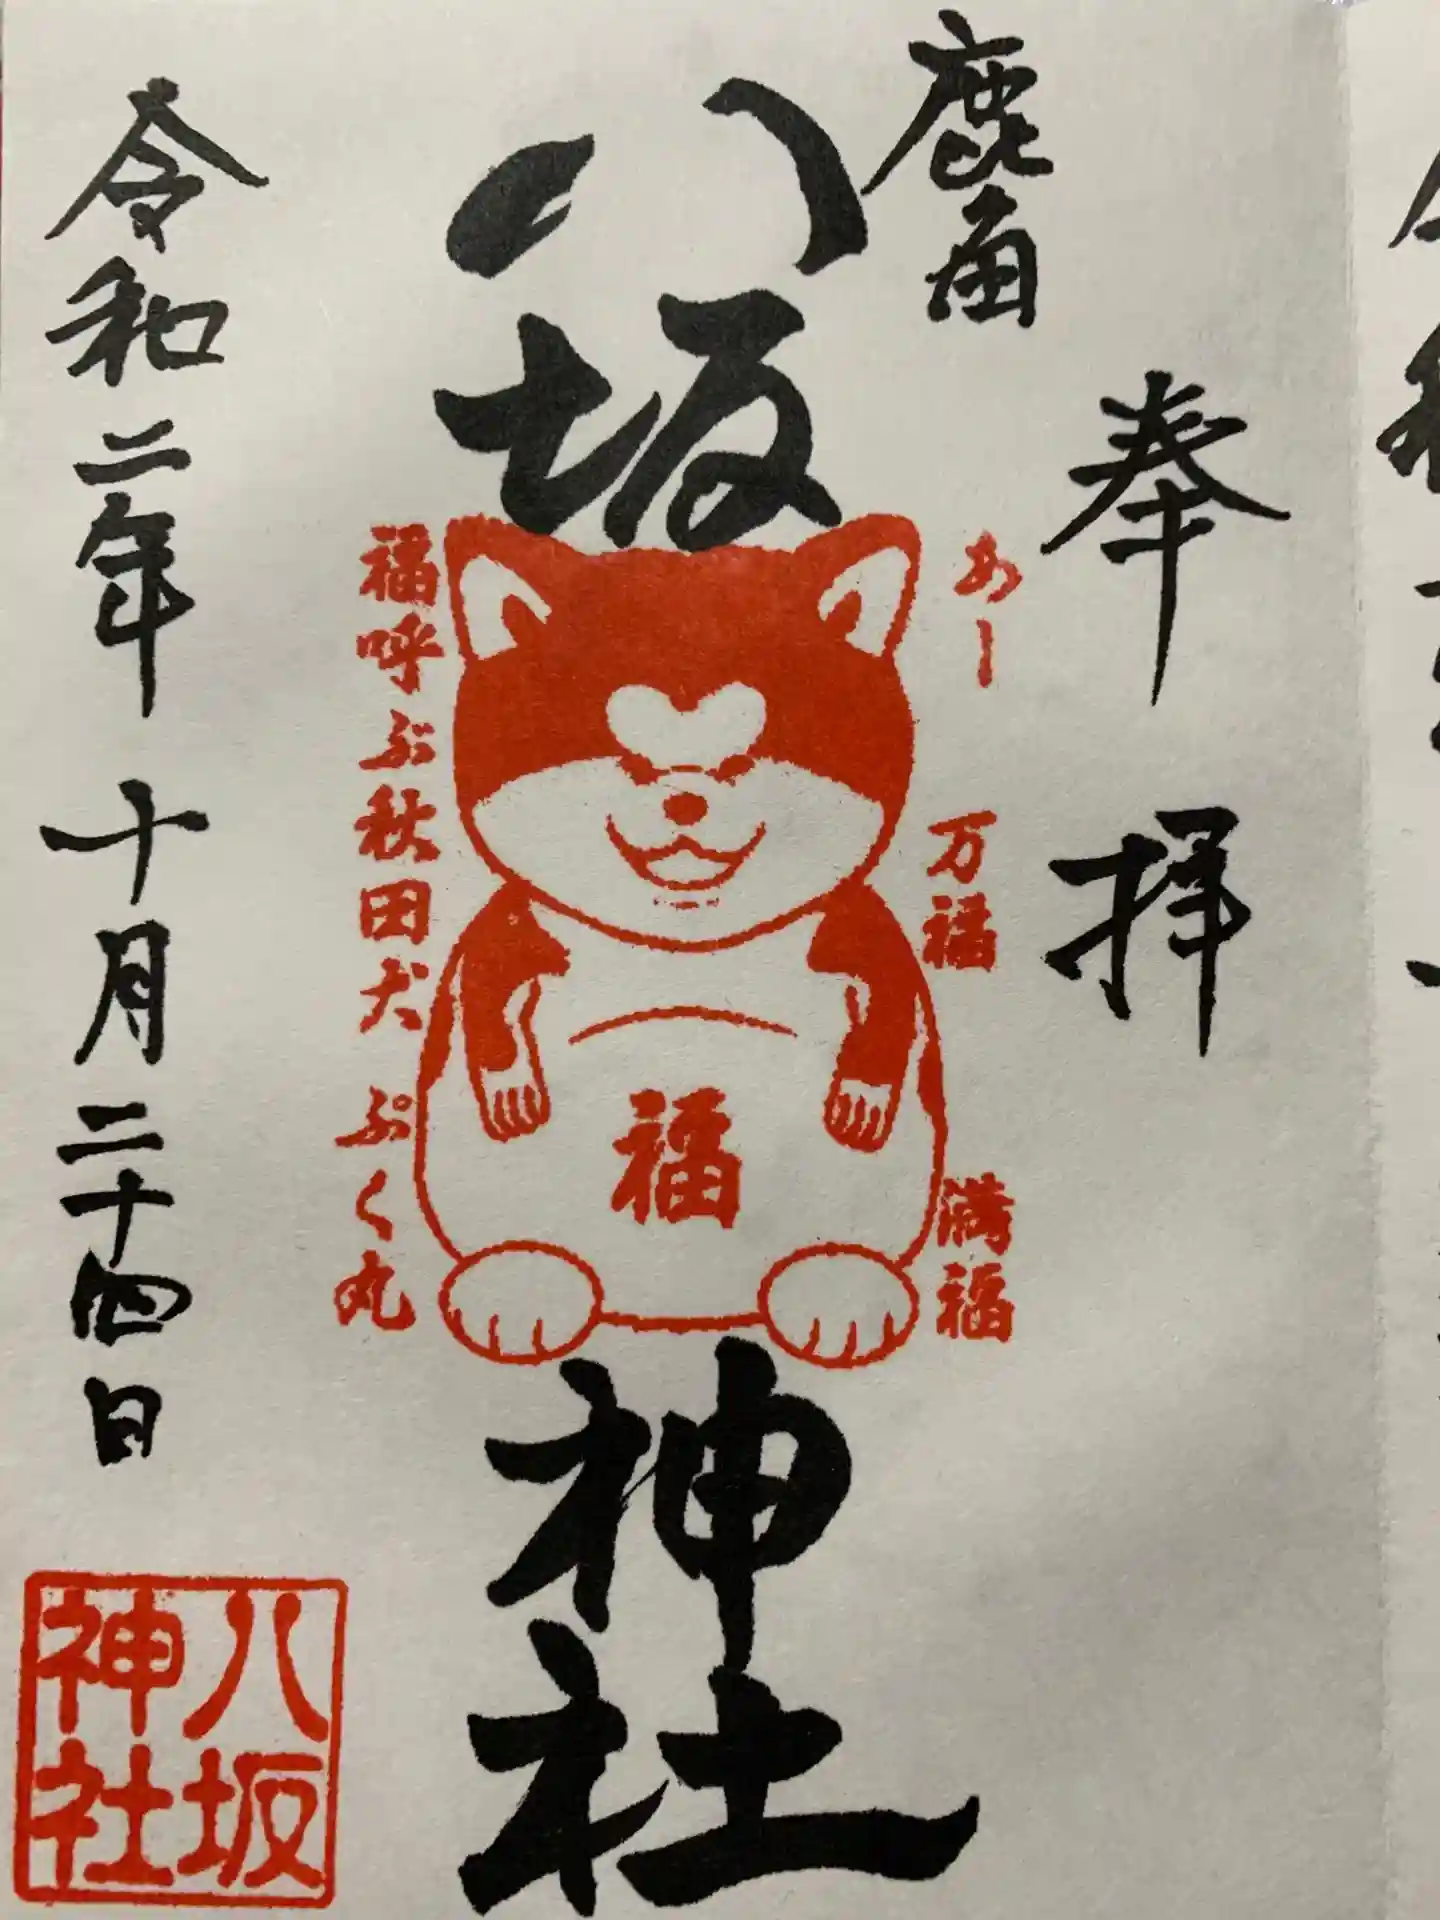 奉拝
鹿角
八坂神社
あー
万福
満福
福
福呼ぶ秋田犬 ぷく丸
令和二年 十月二十四日
八坂
神社